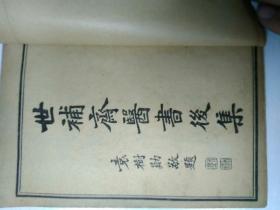 世補齋醫書後集
袁樹勛敬題